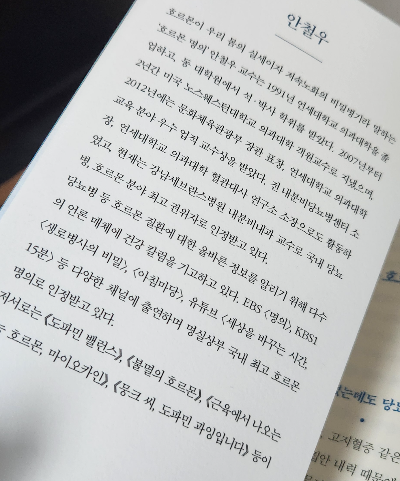 안철우
호르몬이 우리 몸의 실세이자 저속노화의 비밀병기라 말하는
'호르몬 명의' 안철우 교수는 1991년 연세대학교 의과대학을 졸
업하고, 동 대학원에서 석·박사 학위를 받았다. 2007년부터
2년간 미국 노스웨스턴대학교 의과대학 객원교수로 지냈으며,
2012년에는 문화체육관광부 장관 표창, 연세대학교 의과대학
교육 분야 우수 업적 교수상을 받았다. 전 내분비당뇨병센터 소
장, 연세대학교 의과대학 혈관대사 연구소 소장으로도 활동하
였고, 현재는 강남세브란스병원 내분비내과 교수로 국내 당뇨
병, 호르몬 분야 최고 권위자로 인정받고 있다.
당뇨병 등 호르몬 질환에 대한 올바른 정보를 알리기 위해 다수
의 언론 매체에 건강 칼럼을 기고하고 있다. EBS 〈명의〉, KBS1
〈생로병사의 비밀〉, 〈아침마당〉, 유튜브 〈세상을 바꾸는 시간,
15분〉 등 다양한 채널에 출연하며 명실상부 국내 최고 호르몬
명의로 인정받고 있다.
저서로는 《도파민 밸런스》, 《불멸의 호르몬》, 《근육에서 나오는
호르몬, 마이오카인》, 《뭉크 씨, 도파민 과잉입니다》 등이
호
에도 당뇨
고지혈증 같은
내력 때문에